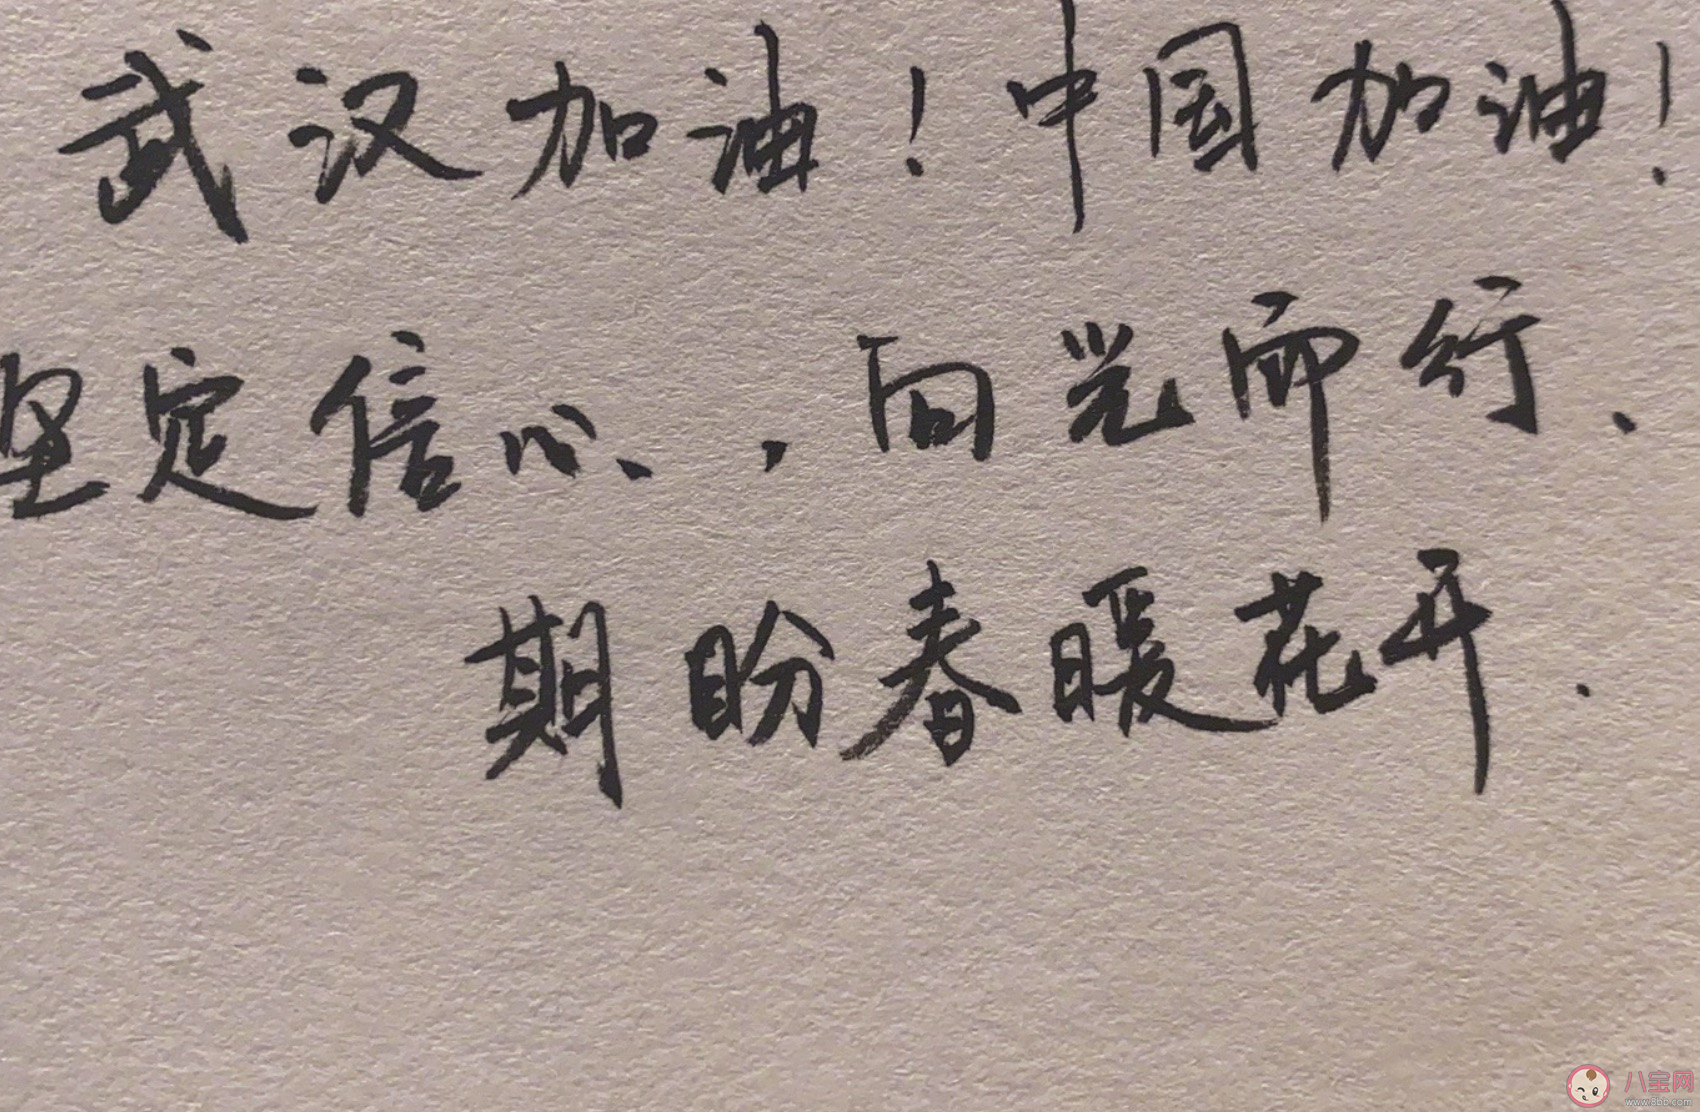 武汉加油！中国加油！
坚定信心，向光而行、
期盼春暖花开.
八宝网
www.8bb.com